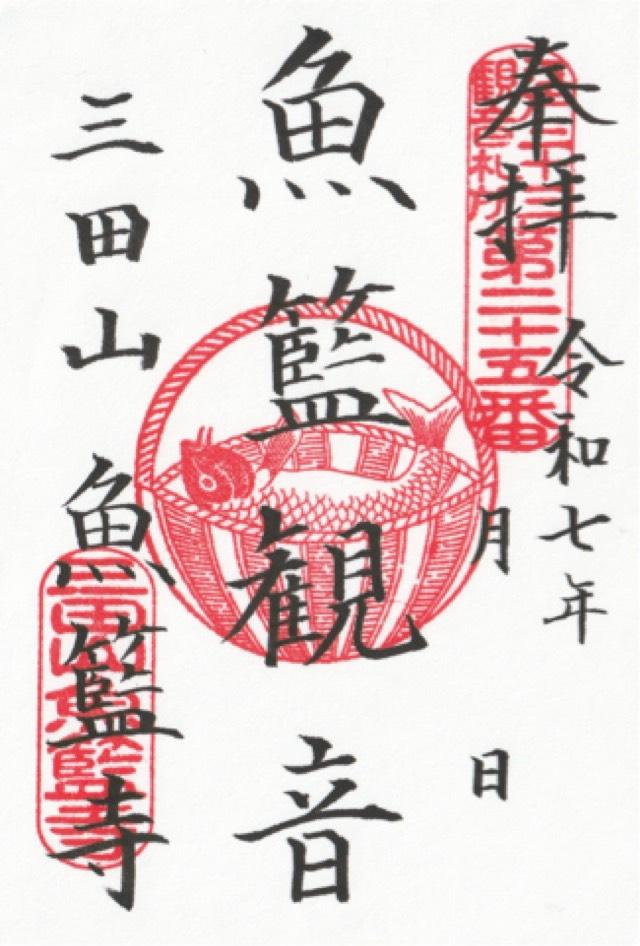 奉拝
令和七年
月 日
第二十五番
魚籃観音
三田山 魚籃寺
三田山魚籃寺